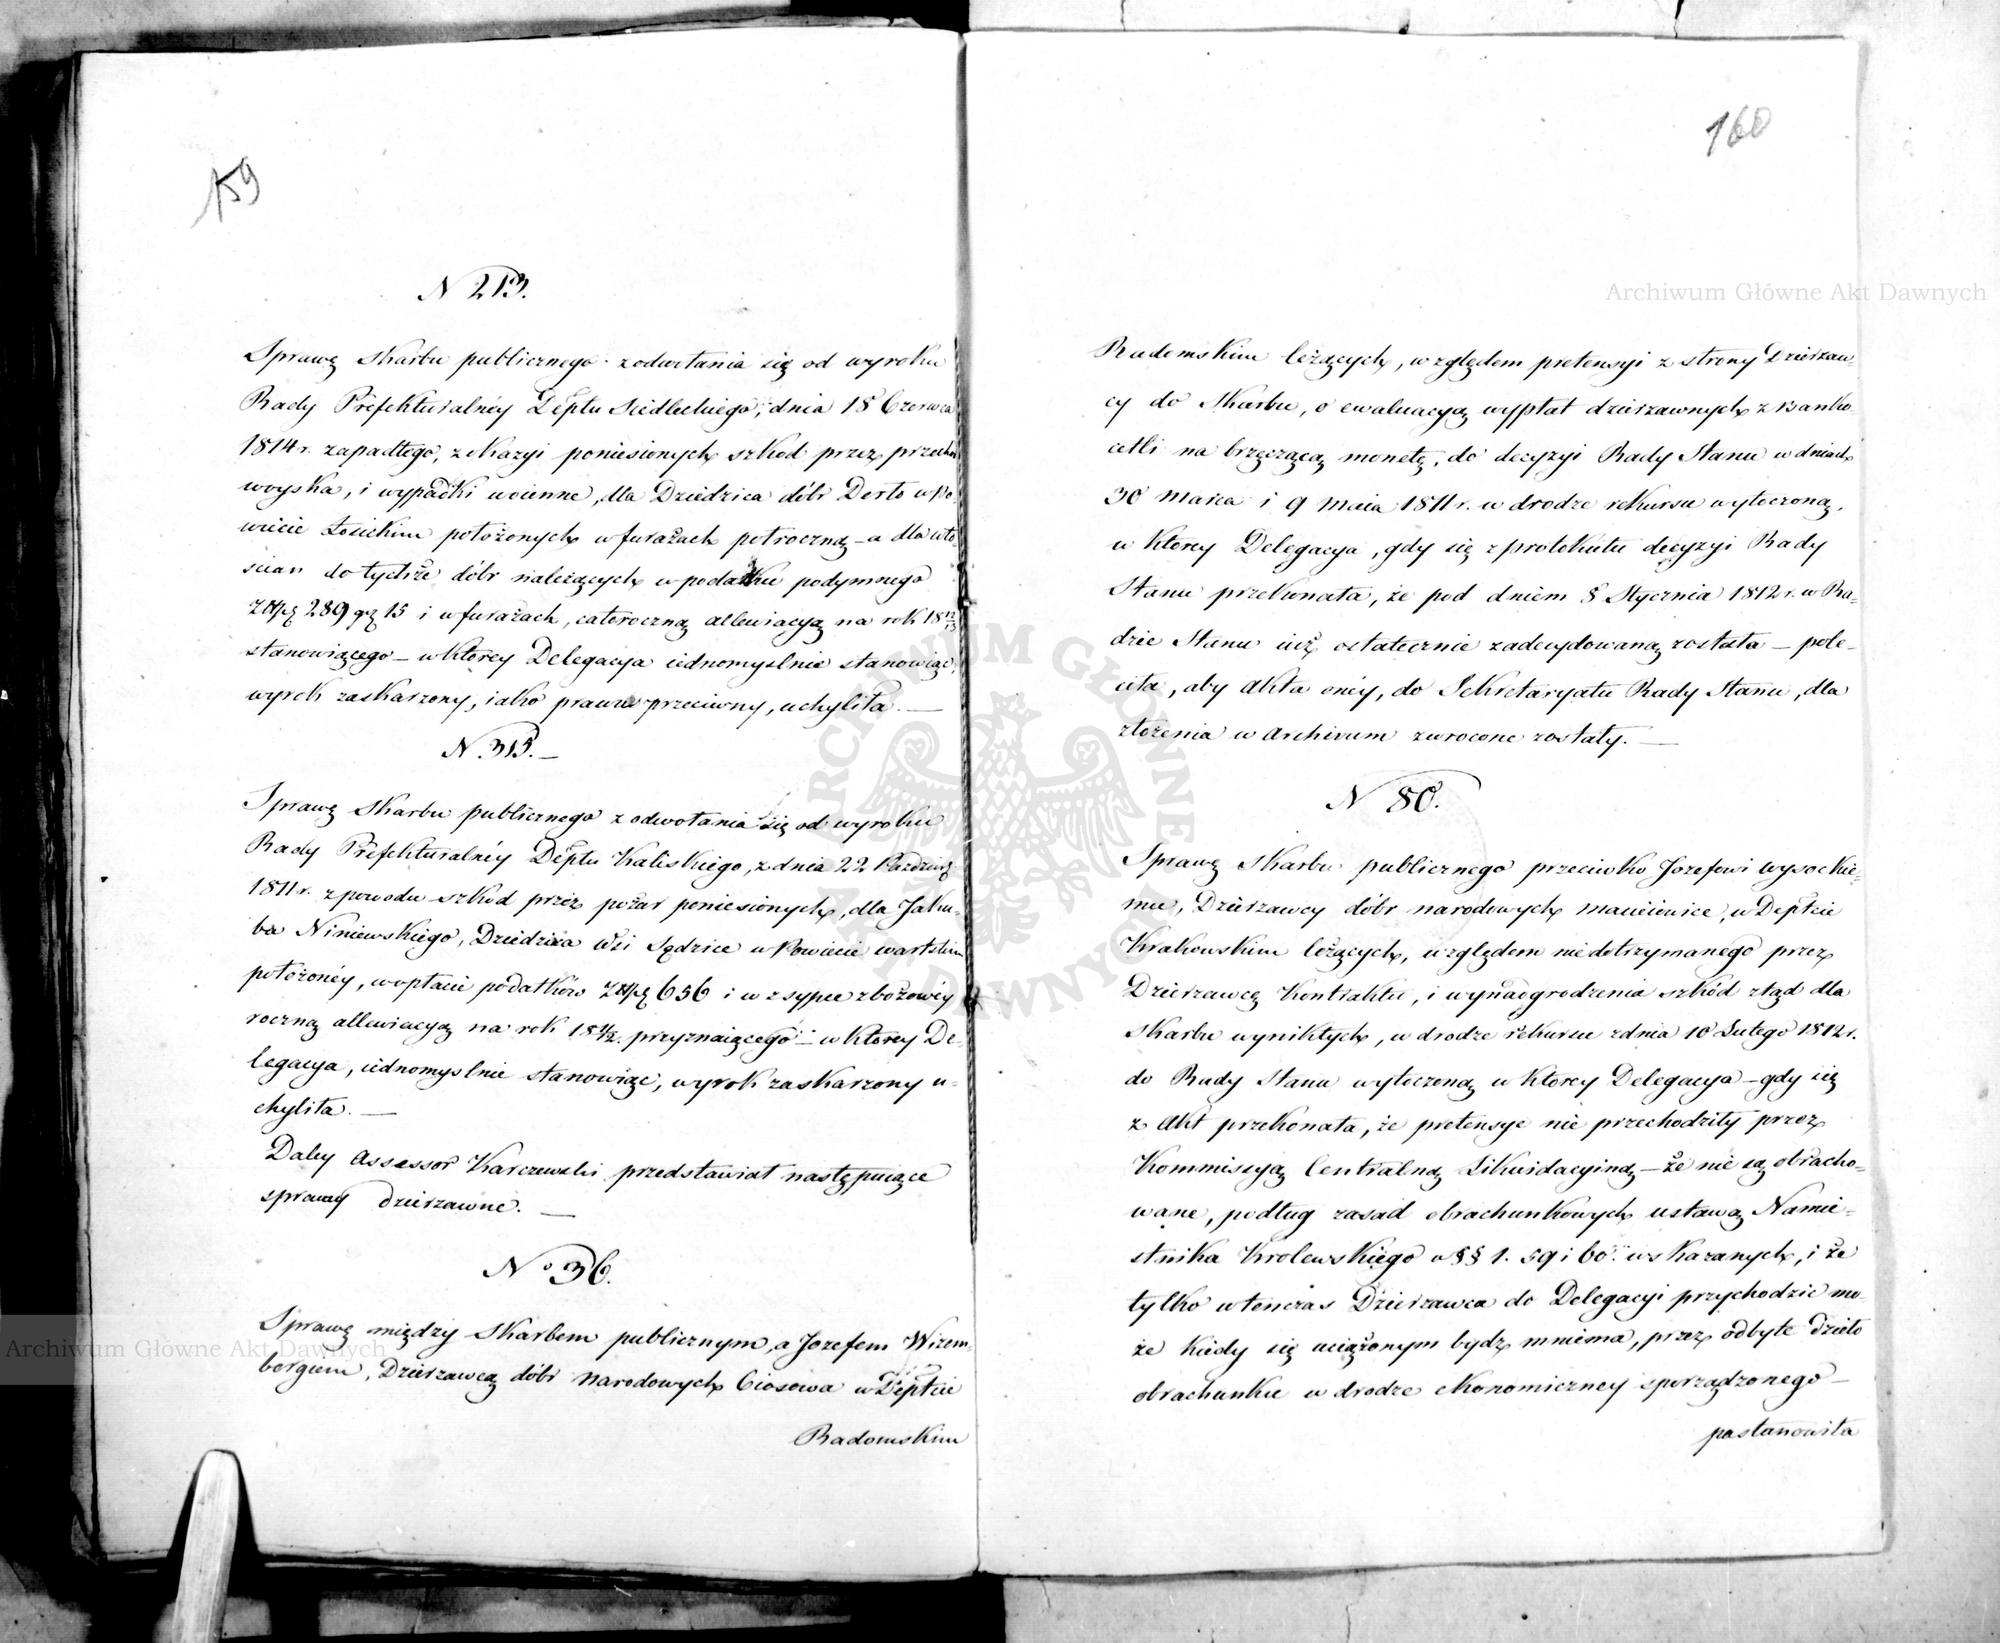 159
N 213.
Sprawę Skarbu publicznego z odwołania się od wyroku
Rady Prefekturalnéy Deptu Siedleckiego, dnia 18 Czerwca
1814 r. zapadłego, z okazyi poniesionych szkód przez przechód
woyska, i wypadki woienne, dla Dziedzica dóbr Dorło w Po-
wiecie Łosickim położonych w furażach półroczną – a dla wło-
scian do tychże dóbr należących w podatku podymnego
Złpȝ 289 gȝ 15 i w furażach, całoroczną allewiacyą na rok 18 12/13
stanowiącego – w ktorey Delegacya iednomyslnie stanowiąc,
wyrok zaskarzony, iako prawu przeciwny, uchyliła. —
N. 315. —
Sprawę Skarbu publicznego z odwołania się od wyroku
Rady Prefekturalnéy Deptu Kaliskiego, z dnia 22 Paździer.
1811 r. z powodu szkód przez pożar poniesionych, dla Jaku-
ba Niniewskiego, Dziedzica Wsi Sędzice w Powiecie wartskim
położonéy, w opłacie podatków Złpȝ 656 i w zsypce zbożowéy
roczną allewiacyą na rok 18 11/12. przyznaiącego – w ktorey De-
legacya, iednomyslnie stanowiąc, wyrok zaskarzony u-
chyliła. —
Daley Assessor Karczewski przedstawiał następuiące
sprawy dzierzawne. —
No 36.
Sprawę między Skarbem publicznym, a Jozefem Wizem-
borgiem, Dzierzawcą dóbr Narodowych Ciosowa w Deptcie
Radomskim
160
Radomskim leżących, względem pretensyi z strony Dzierzaw-
cy do Skarbu, o ewaluacyą wypłat dzierzawnych z Banko-
cetli na brzęczącą monetę, do decyzyi Rady Stanu w dniach
30 Marca i 9 Maia 1811 r. w drodze rekursu wytoczoną,
w ktorey Delegacya, gdy się z protokułu decyzyi Rady
Stanu przekonała, że pod dniem 8 Stycznia 1812 r. w Ra-
dzie Stanu iuż ostatecznie zadecydowaną została – pole-
ciła, aby Akta onéy, do Sekretaryatu Rady Stanu, dla
złożenia w Archivum zwrocone zostały. —
N 80.
Sprawę Skarbu publicznego przeciwko Jozefowi Wysockie-
mu, Dzierzawcy dóbr narodowych Maciciowice, w Deptcie
Krakowskim leżących, względem niedotrzymanego przez
Dzierzawcę Kontraktu, i wynadgrodzenia szkód ztąd dla
Skarbu wynikłych, w drodze rekursu z dnia 10 Lutego 1812 r.
do Rady Stanu wytoczoną w ktorey Delegacya – gdy się
z Akt przekonała, że pretensye nie przechodziły przez
Kommissyą Centralną Likwidacyiną – że nie są obracho-
wane, podług zasad obrachunkowych ustawą Namie-
stnika Krolewskiego w §§ 1. 59 i 60. wskazanych, i że
tylko wtenczas Dzierzawca do Delegacyi przychodzic mo-
że kiedy się uciążonym bydz mniema, przez odbyte dzieło
obrachunku w drodze ekonomiczney sporządzonego –
postanowiła